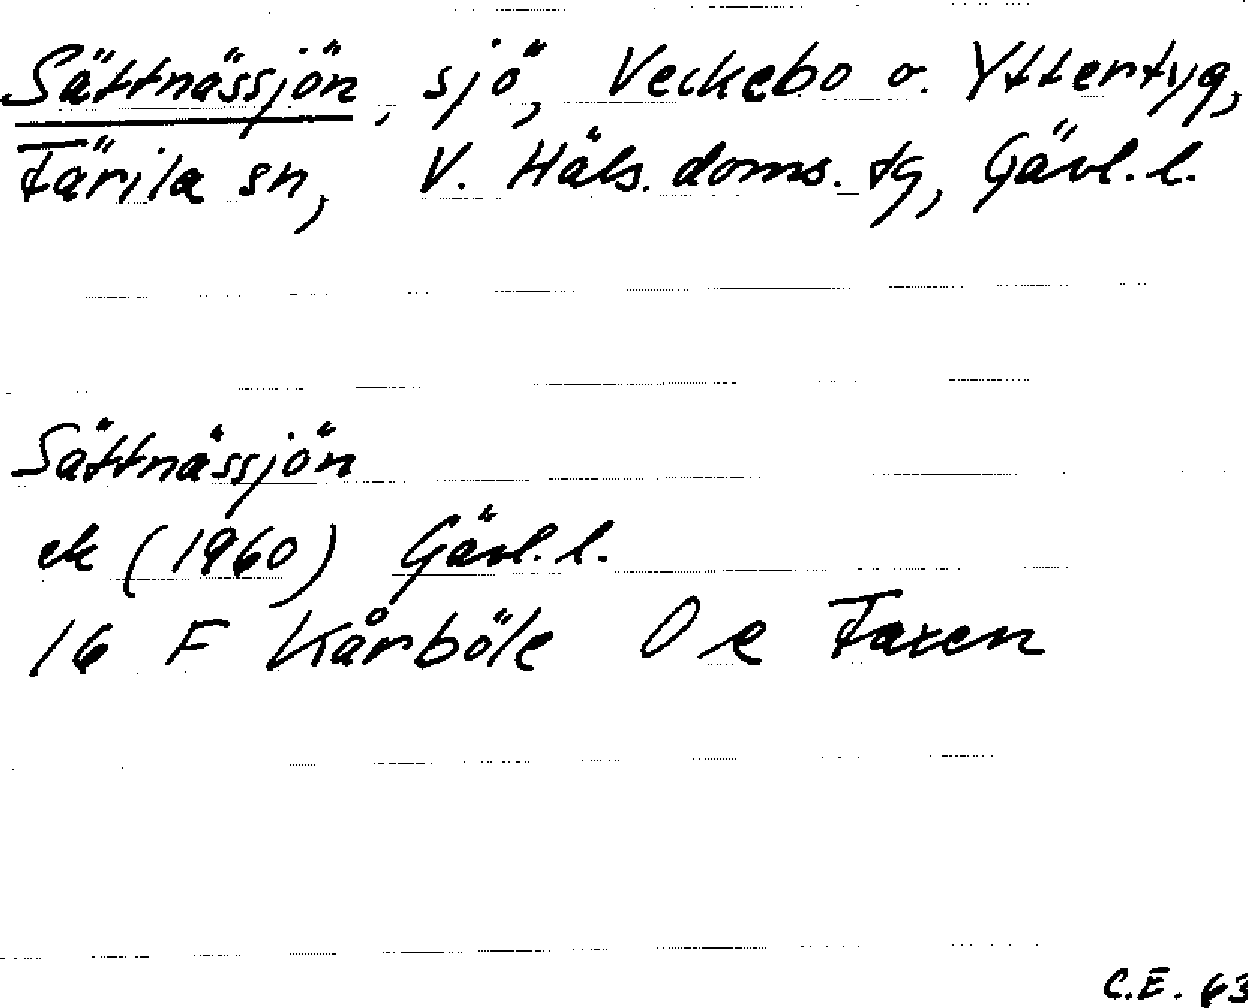 Sättnässjön, sjö, Veckebo o. Yttertyg,
Färila sn, V. Häls. doms. tg, Gävl. l.
Sättnässjön
ek (1960) Gävl. l.
16 F Kårböle 0 e Faxen
C.E. 63